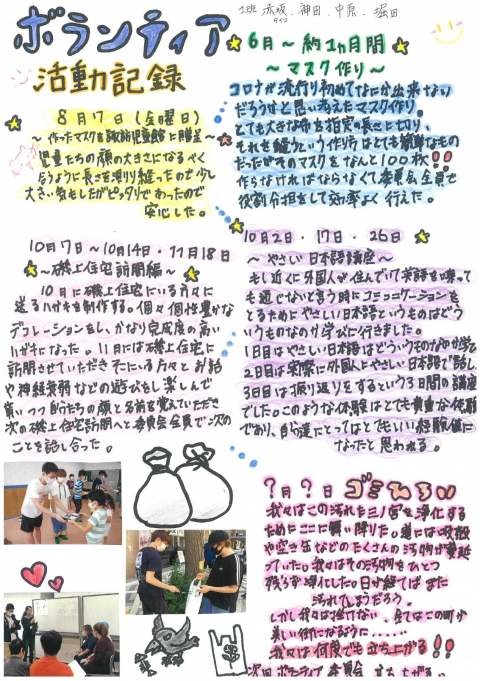 1班 赤坂、神田、中原、堀田
ボランティア
活動記録
6月〜約1ヵ月間
〜マスク作り〜
コロナが流行り初めてなにか出来ない
だろうかと思い考えたマスク作り。
とても大きな布を指定の長さに切り、
それを縫うという作り方はとても簡単なもの
だったがそのマスクをなんと100枚!!
作らなければならなくて委員会全員で
役割分担をして効率よく行えた。
8月17日(金曜日)
〜作ったマスクを諏訪児童館に贈呈〜
児童たちの顔の大きさになるべく
合うように長さを測り縫ったので少し
大きい気もしたがピッタリであったので
安心した。
10月7日〜10月14日・11月18日
〜磯上住宅訪問編〜
10月に磯上住宅にいる方々に
送るハガキを制作する。個々個性豊かな
デコレーションをし、かなり完成度の高い
ハガキになった。11月には磯上住宅に
訪問させていただきそこにいる方々とお話
や神経衰弱などの遊びをし楽しんで
貰いつつ自分たちの顔と名前を覚えていただき
次の磯上住宅訪問へと委員会全員で次の
ことを話し合った。
10月2日・17日・26日
〜やさしい日本語講座〜
もし近くに外国人が住んでいて英語を喋って
も通じないと言う時にコミュニケーションを
とるためにやさしい日本語というものはどう
いうものなのか学びに行きました。
1日目はやさしい日本語はどういうものなのか学び
2日目は実際に外国人とやさしい日本語で話し、
3日目は振り返りをするという3日間の講座
でした。このような体験はとても貴重な体験
であり、自分達にとってはとてもいい経験値に
なったと思われる。
?月?日 ゴミひろい
我々はこの汚れた三ノ宮を浄化する
ためにここに舞い降りた。道には吸殻
や空き缶などのたくさんの汚物が蔓延
っていた。我々はその汚物をひとつ
残らず浄化した。日が経てばまた
汚れてしまうだろう。
しかし我々は挫けない、全てはこの町が
美しい街になるように......
我々は何度でも立ち上がる!!
次回ボランティア委員会